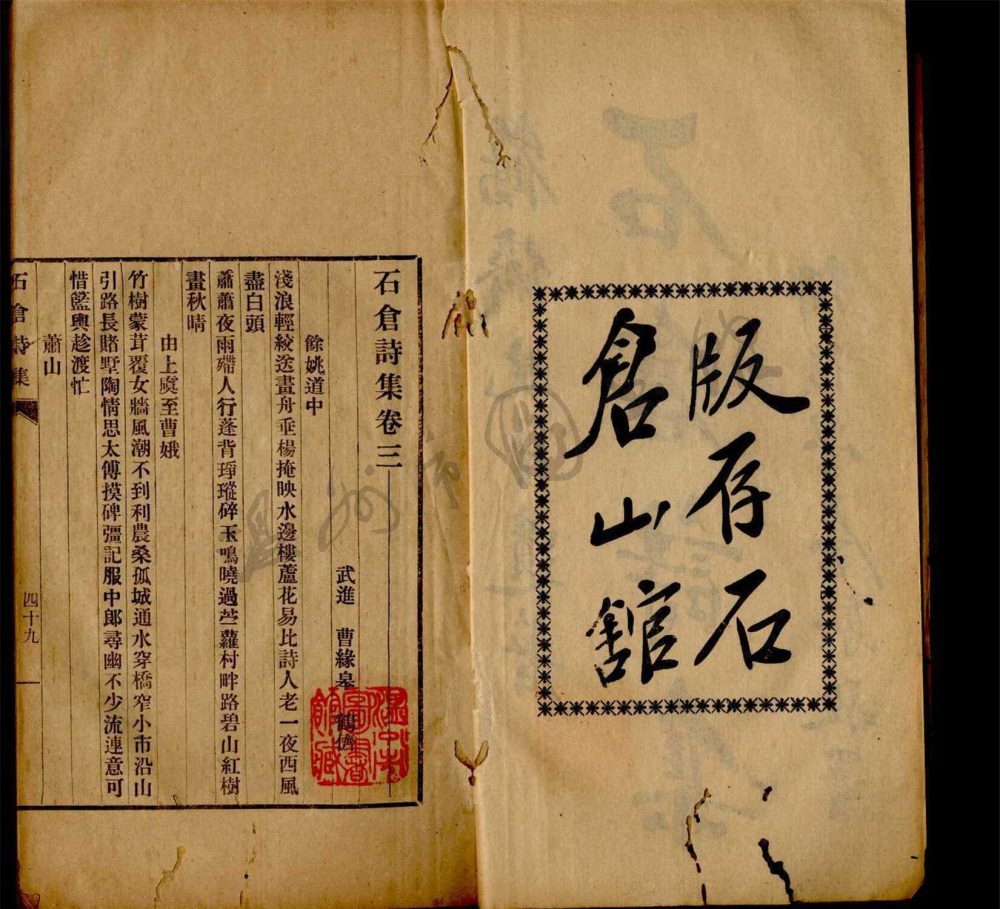 版存石
倉山館
石倉詩集卷三
武進 曹緣皋 鶴儕
餘姚道中
淺浪輕紋送畫舟垂楊掩映水邊樓蘆花易比詩人老一夜西風
盡白頭
蕭蕭夜雨殢人行蓬背琤瑽碎玉鳴曉過苎蘿村畔路碧山紅樹
畫秋晴
由上虞至曹娥
竹樹蒙茸覆女牆風潮不到利農桑孤城通水穿橋窄小市沿山
引路長賭墅陶情思太傅摸碑彊記服中郎尋幽不少流連意可
惜籃輿趁渡忙
蕭山
石倉詩集
四十九